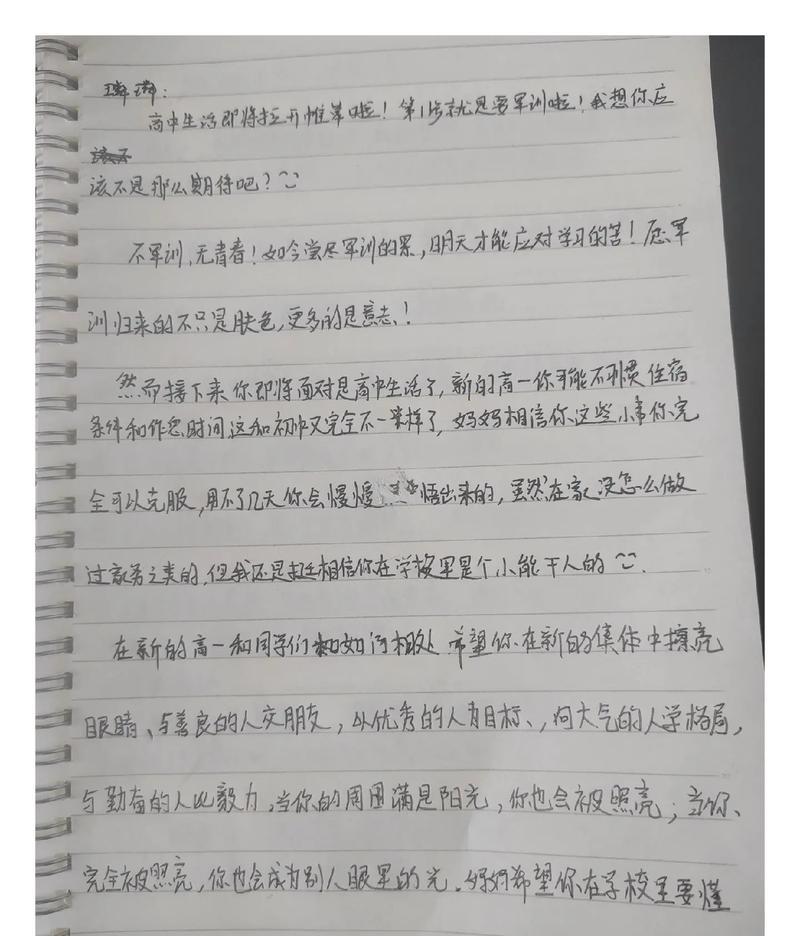 璘璘：
高中生活即将拉开帷幕啦！第1步就是要军训啦！我想你应
该不是那么期待吧？
不军训，无青春！如今尝尽军训的累，明天才能应对学习的苦！愿军
训归来的不只是肤色，更多的是意志！
然而接下来你即将面对是高中生活了，新的高一你可能不习惯住宿
条件和作息时间这和初中又完全不一样了，妈妈相信你这些小事你完
全可以克服，用不了几天你会慢慢悟出来的，虽然在家没怎么做
过家务之类的，但我还是相信你在学校里是个小能干人的
在新的高一和同学们如何相处 希望你在新的集体中擦亮
眼睛、与善良的人交朋友，以优秀的人为目标、向大气的人学格局，
与勤奋的人比毅力，当你的周围满是阳光，你也会被照亮；当你、
完全被照亮，你也会成为别人眼里的光．妈妈希望你在学校里要懂